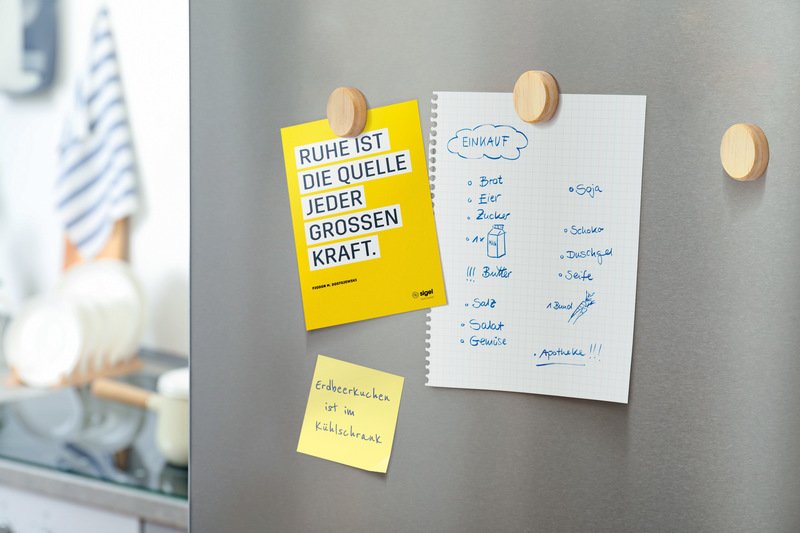 RUHE IST
DIE QUELLE
JEDER
GROSSEN
KRAFT.
FJODOR M. DOSTOJEWSKI
sigel
EINKAUF
Brot
Eier
Zucker
1x
Milch
!!! Butter
Salz
Salat
Gemüse
Soja
Schoko
Duschgel
Seife
1 Bund
Apotheke !!!
Erdbeerkuchen
ist im
Kühlschrank